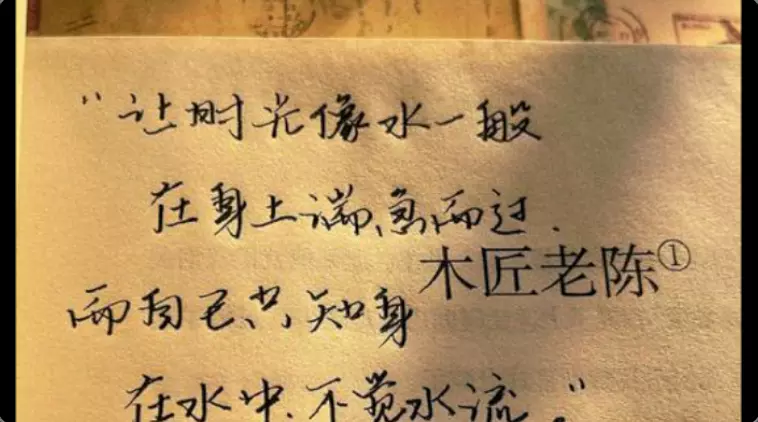 “让时光像水一般
在身上湍急而过.
木匠老陈①
而自己只知身
在水中.不觉水流。”